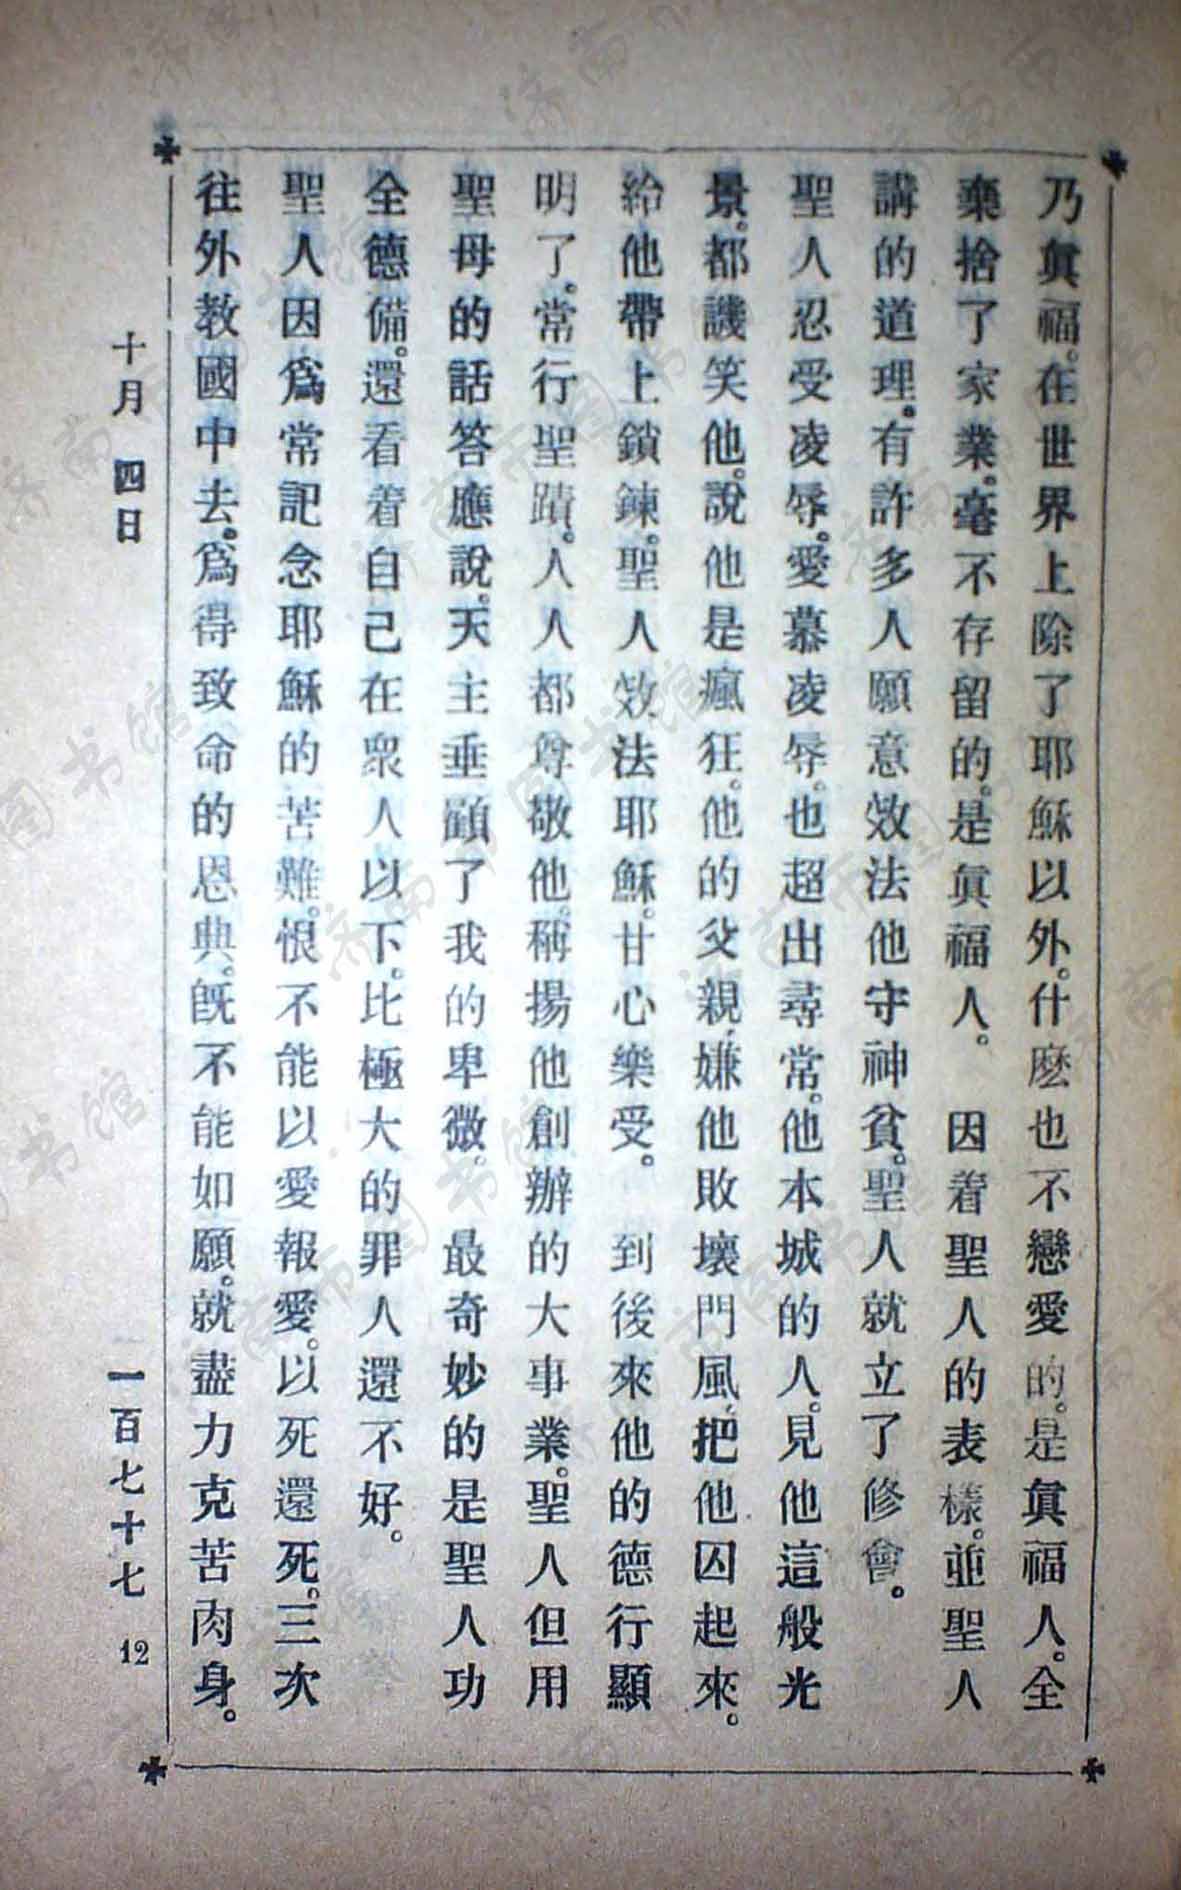 乃眞福。在世界上除了耶穌以外。什麽也不戀愛的。是眞福人。全
棄捨了家業。毫不存留的。是眞福人。　因着聖人的表樣。並聖人
講的道理。有許多人願意效法他守神貧。聖人就立了修會。
聖人忍受凌辱。愛慕凌辱。也超出尋常。他本城的人。見他這般光
景。都譏笑他。說他是瘋狂。他的父親。嫌他敗壞門風。把他囚起來。
給他帶上鎖鍊。聖人效法耶穌。甘心樂受。　到後來他的德行顯
明了。常行聖蹟。人人都尊敬他。稱揚他創辦的大事業。聖人但用
聖母的話答應說。天主垂顧了我的卑微。　最奇妙的是聖人功
全德備。還看着自己在衆人以下。比極大的罪人還不好。
聖人因爲常記念耶穌的苦難。恨不能以愛報愛。以死還死。三次
往外教國中去。爲得致命的恩典。旣不能如願。就盡力克苦肉身。
十月　四日　一百七十七　12
济南市图书馆